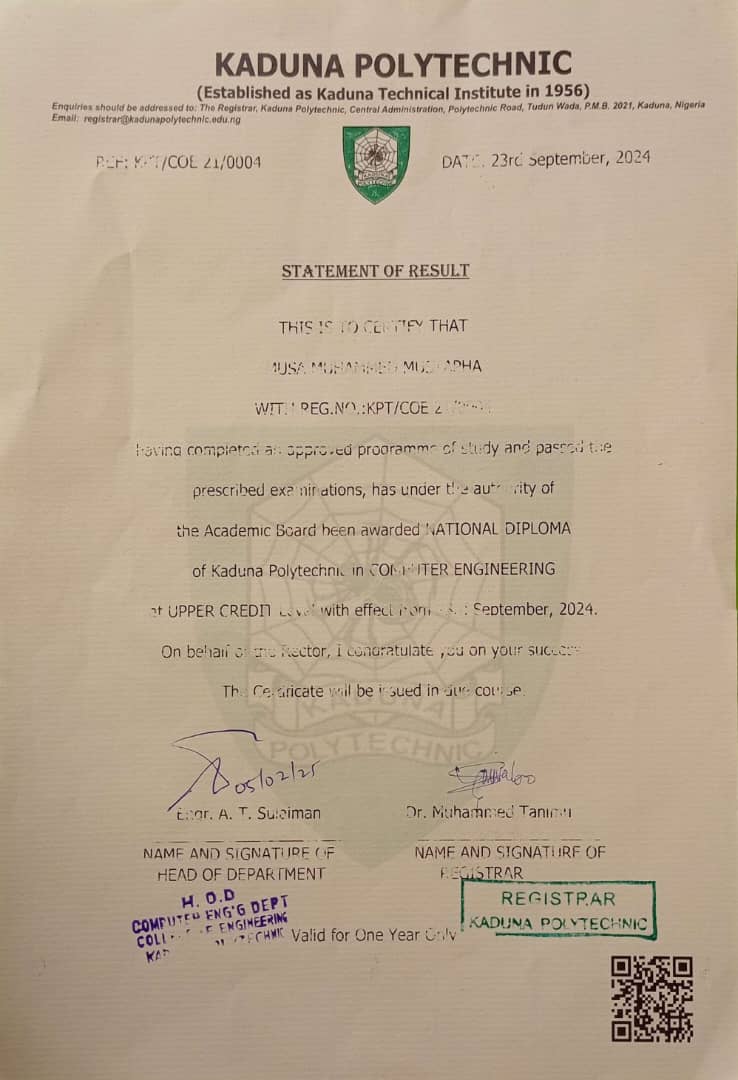 KADUNA POLYTECHNIC
(Established as Kaduna Technical Institute in 1956)
Enquiries should be addressed to: The Registrar, Kaduna Polytechnic, Central Administration, Polytechnic Road, Tudun Wada, P.M.B. 2021, Kaduna, Nigeria
Email: registrar@kadunapolytechnic.edu.ng
REF: KPT/COE 21/0004
DATE: 23rd September, 2024
KADUNA
POLYTECHNIC
STATEMENT OF RESULT
THIS IS TO CERTIFY THAT
MUSA MUHAMMED MUSTAPHA
WITH REG.NO.:KPT/COE
having completed an approved programme of study and passed the
prescribed examinations, has under the authority of
the Academic Board been awarded NATIONAL DIPLOMA
of Kaduna Polytechnic in COMPUTER ENGINEERING
at UPPER CREDIT Level with effect from September, 2024.
On behalf of the Rector, I congratulate you on your success
The Certificate will be issued in due course.
KADUNA
POLYTECHNIC
05/02/25
Engr. A. T. Suleiman
Dr. Muhammed Tanimu
NAME AND SIGNATURE OF
HEAD OF DEPARTMENT
NAME AND SIGNATURE OF
REGISTRAR
H.O.D
COMPUTER ENG'G DEPT
COLLEGE OF ENGINEERING
KADUNA POLYTECHNIC
Valid for One Year Only
REGISTRAR
KADUNA POLYTECHNIC